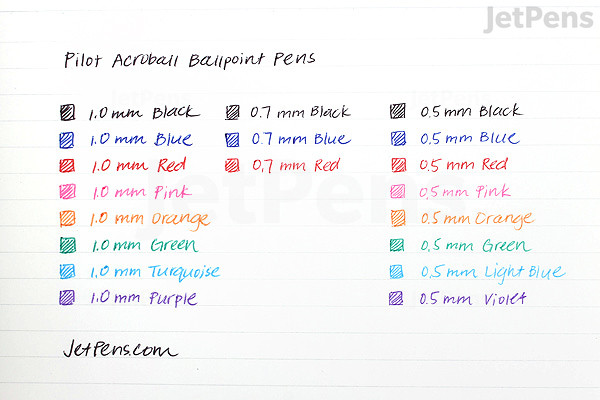 JetPens
Pilot Acroball Ballpoint Pens
1.0 mm Black 0.7 mm Black 0.5 mm Black
1.0 mm Blue 0.7 mm Blue 0.5 mm Blue
1.0 mm Red 0.7 mm Red 0.5 mm Red
1.0 mm Pink 0.5 mm Pink
JetPens
1.0 mm Orange 0.5 mm Orange
1.0 mm Green 0.5 mm Green
1.0 mm Turquoise 0.5 mm Light Blue
1.0 mm Purple 0.5 mm Violet
JetPens.com